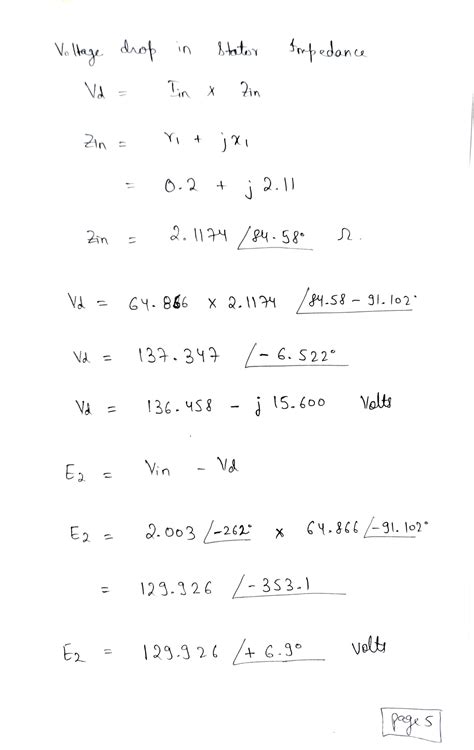 Voltage drop in Stator Impedance
Vd = Iin x Zin
Zin = r1 + jx1
= 0.2 + j 2.11
Zin = 2.1174 /84.58° Ω.
Vd = 64.866 x 2.1174 /84.58 - 91.102°
Vd = 137.347 /-6.522°
Vd = 136.458 - j 15.600 Volts
E2 = Vin - Vd
E2 = 2.003 /-262° x 64.866 /-91.102°
= 129.926 /-353.1
E2 = 129.926 /+6.9° volts
page 5